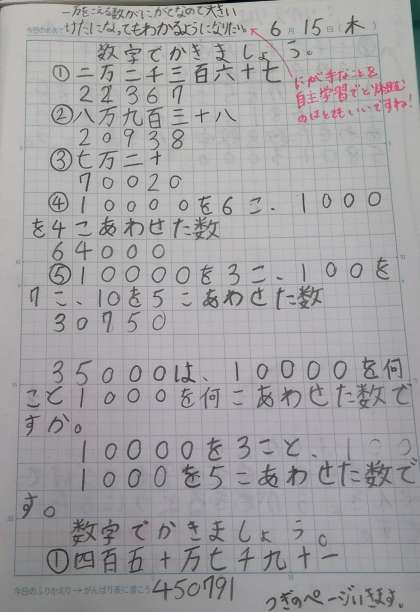 一万をこえる数がにがてなので大きい
今日のめあて けたになってもわかるようになりたい。 6月15日(木)
数字でかきましょう。
にが手なことを
自主学習で
のはとてもいいですね!
①二万二千三百六十七
22367
②八万九百三十八
20938
③七万二十
70020
④10000を6こ、1000
を4こあわせた数
64000
⑤10000を3こ、100を
7こ、10を5こあわせた数
30750
35000は、10000を何
こと1000を何こあわせた数で
すか。
10000を3こと、100
1000を5こあわせた数で
す。
数字でかきましょう。
①四百五十万七千九十一
今日のふりかえり→がんばり表に書こう 450791
つぎのページいきます。